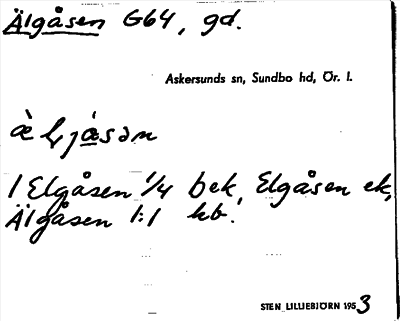 Älgåsen G64, gd.
Askersunds sn, Sundbo hd, Ör. l.
1 Elgåsen 1/4 bek, Elgåsen ek,
Älgåsen 1:1 hb.
STEN LILLIEBJÖRN 1953